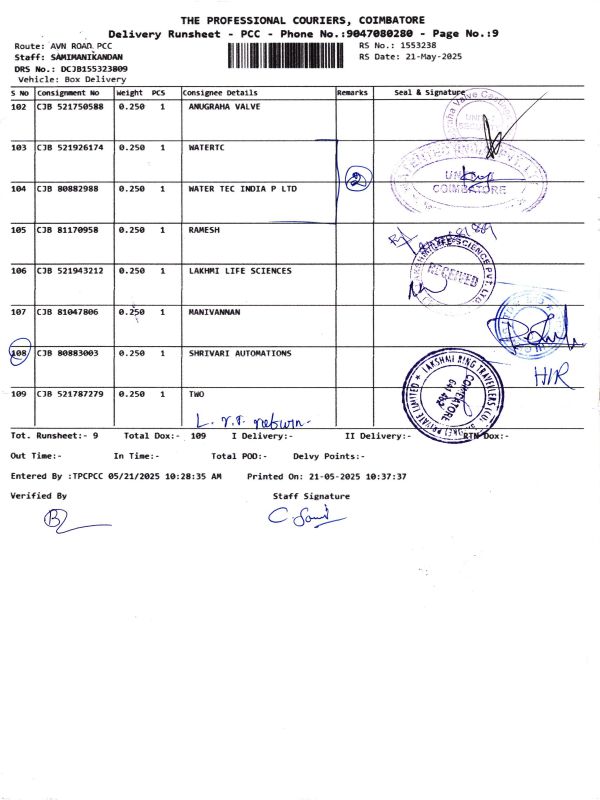 THE PROFESSIONAL COURIERS, COIMBATORE
Delivery Runsheet - PCC - Phone No.:9047080280 - Page No.:9
Route: AVN ROAD PCC RS No.: 1553238
Staff: SAMIMANIKANDAN RS Date: 21-May-2025
DRS No.: DCJB155323809
Vehicle: Box Delivery
S No Consignment No Weight PCS Consignee Details Remarks Seal & Signature
102 CJB 521750588 0.250 1 ANUGRAHA VALVE
103 CJB 521926174 0.250 1 WATERTC
104 CJB 80882988 0.250 1 WATER TEC INDIA P LTD 2
COIMBATORE
105 CJB 81170958 0.250 1 RAMESH
106 CJB 521943212 0.250 1 LAKHMI LIFE SCIENCES
RECEIVED
107 CJB 81047806 0.250 1 MANIVANNAN
108 CJB 80883003 0.250 1 SHRIVARI AUTOMATIONS
H/R
109 CJB 521787279 0.250 1 TWO
LAKSHMI RING TRAVELLERS (CBE) PRIVATE LIMITED
COIMBATORE
Tot. Runsheet:- 9 Total Dox:- 109 I Delivery:- II Delivery:- RTN Dox:-
Out Time:- In Time:- Total POD:- Delvy Points:-
Entered By :TPCPCC 05/21/2025 10:28:35 AM Printed On: 21-05-2025 10:37:37
Verified By Staff Signature